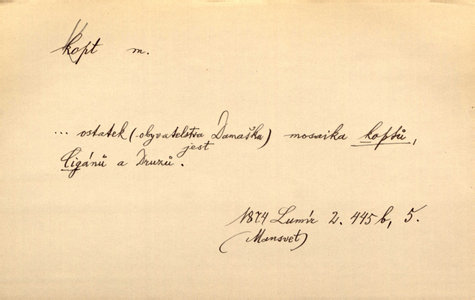 Kopt m.
... ostatek (obyvatelstva Damaška) mosaika koptů,
jest
Cigánů a Druzů.
1874 Lumír 2. 445 b, 5.
(Mansvet)